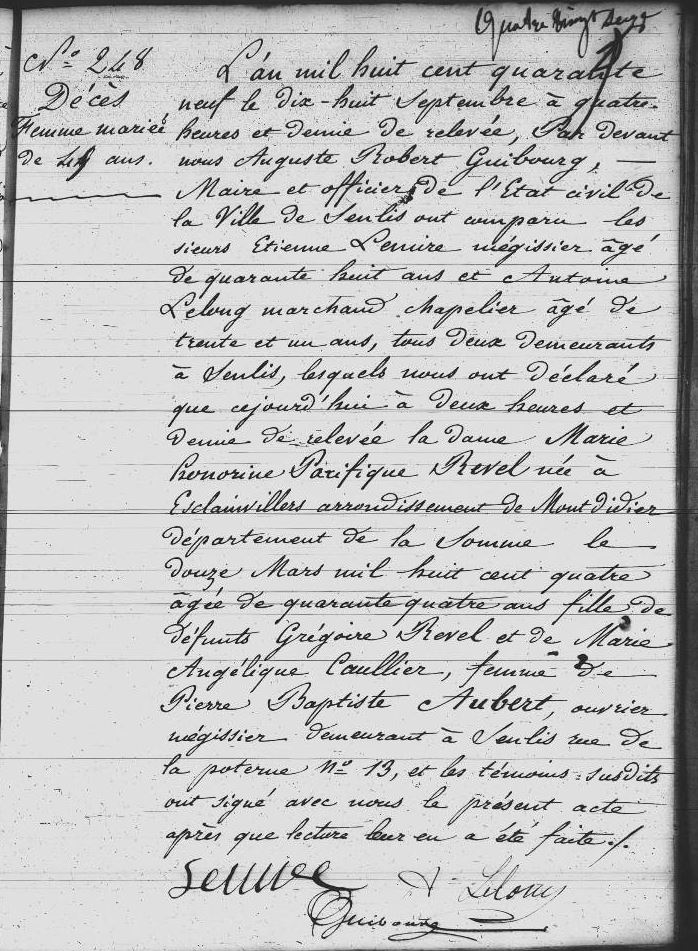 Quatre Vingt Seize
N.º 248
Décès
Femme mariée
de 44 ans.
L'an mil huit cent quarante
neuf le dix-huit Septembre à quatre
heures et demie de relevée, Par devant
nous Auguste Robert Guibourg, —
Maire et officier de l'Etat civil de
la Ville de Senlis ont comparu les
sieurs Etienne Lemire mégissier âgé
de quarante huit ans et Antoine
Lelong marchand chapelier âgé de
trente et un ans, tous deux demeurants
à Senlis, lesquels nous ont déclaré
que cejourd'hui à deux heures et
demie de relevée la dame Marie
honorine Pacifique Revel née à
Esclainvillers arrondissement de Montdidier
département de la Somme le
douze Mars mil huit cent quatre
âgée de quarante quatre ans fille de
défunts Grégoire Revel et de Marie
Angélique Caullier, femme de
Pierre Baptiste Aubert, ouvrier
mégissier demeurant à Senlis rue de
la poterne Nº 13, et les témoins susdits
ont signé avec nous le présent acte
après que lecture leur en a été faite ./.
Lemire A Lelong
Guibourg